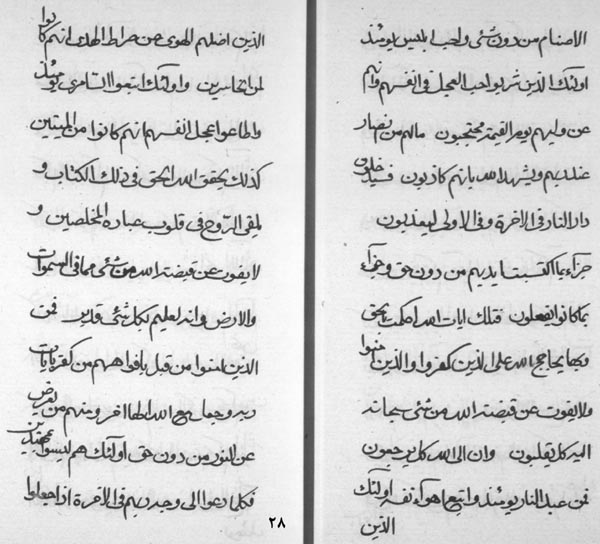 الاصنام من دون شئ واحب ابليس يومئذ
اولئك الذين شربوا حب العجل فى انفسهم وانهم
عن وليهم يوم القيمة محتجبون مالهم من نصار
عند ربهم ويشهد الله بانهم كاذبون فسيدخلون
دار النار فى الاخرة وفى الاولى ليعذبون
جزاء بما اكتسبت ايديهم من دون حق وجزآء
بما كانوا يفعلون فتلك ايات الله احكمت بالحق
وبها يحاجج الله على الذين كفروا والذين امنوا
ولا يفوت عن قبضته الله من شئ سبحانه
اليه كل يقلبون وان الى الله كل يرجعون
فمن عبد النار يومئذ واتبع اهوآء نفسه اولئك
الذين
الذين اضلهم الهوى عن صراط الهدى انهم كانوا
لمن الخاسرين واولئك اتبعوا السامرى يومئذ
واطاعوا عجل انفسهم انهم كانوا من الميتين
كذلك يحقق الله الحق فى ذلك الكتاب و
يلقى الروح فى قلوب عباده المخلصين و
لا يفوت عن قبضته الله من شئ مما فى السموات
والارض وانه لعليم بكل شئ قدير فمن
الذين امنوا من قبل بافواههم من كفر بايات
ربه وجعل مع الله الها اخر ومنهم من يعرض
عن النور من دون حق اولئك هم ليسوا بمهتدين
فكلما دعوا الى وجه ربهم فى الاخرة اذا جعلوا
٢٨